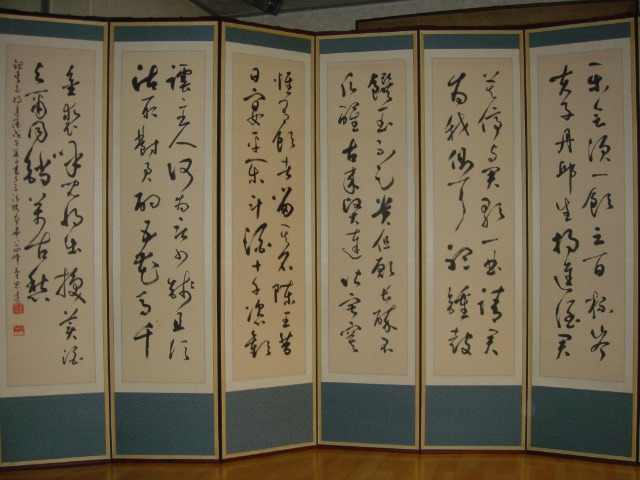 樂會須一飲三百杯岑
夫子丹邱生將進酒君
莫停與君歌一曲請君
為我側耳聽鍾鼓
饌玉不足貴但願長醉不
醒古來賢達皆寂寞
惟有飲者留其名陳王昔
日宴平樂斗酒十千恣歡
謔主人何為言少錢且須
沽取對君酌五花馬千
金裘呼兒將出換美酒
與爾同銷萬古愁
李白將進酒